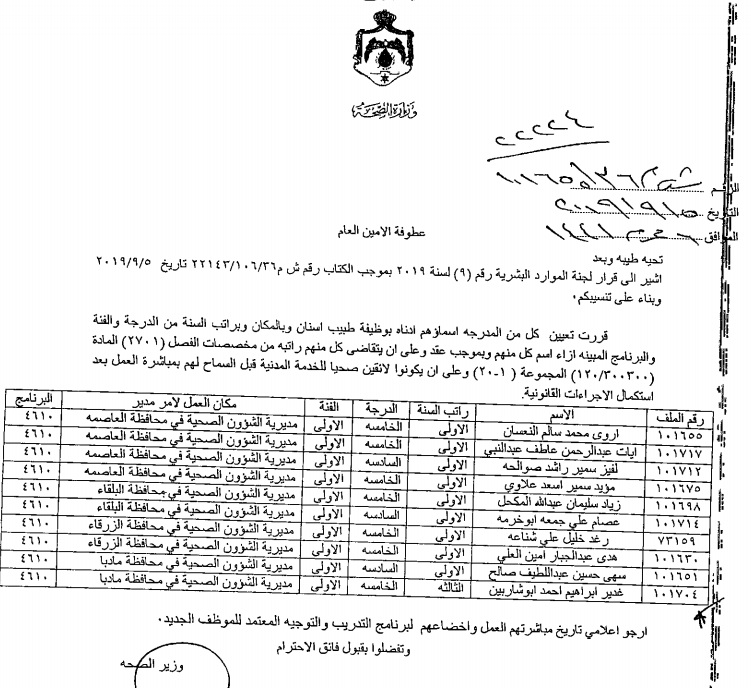 وزارة الصحة
٢٢٢٢٤
الرقم
التاريخ ٢٠١٩/٩/١٥
الموافق ١٤٤١
عطوفة الامين العام
تحيه طيبه وبعد
اشير الى قرار لجنة الموارد البشرية رقم (٩) لسنة ٢٠١٩ بموجب الكتاب رقم ش م٢٢١٤٣/١٠٦/٣٦ تاريخ ٢٠١٩/٩/٥
وبناء على تنسيبكم٠
قررت تعيين كل من المدرجه اسماؤهم ادناه بوظيفة طبيب اسنان وبالمكان وبراتب السنة من الدرجة والفئة
والبرنامج المبينه ازاء اسم كل منهم وبموجب عقد وعلى ان يتقاضى كل منهم راتبه من مخصصات الفصل (٢٧٠١) المادة
(١٢٠/٣٠٠٣٠٠) المجموعة (١-٢٠) وعلى ان يكونوا لائقين صحيا للخدمة المدنية قبل السماح لهم بمباشرة العمل بعد
استكمال الاجراءات القانونية.
رقم الملف الاسم راتب السنة الدرجة الفئة مكان العمل لامر مدير البرنامج
١٠١٦٥٥ اروى محمد سالم النعسان الاولى الخامسه الاولى مديرية الشؤون الصحية في محافظة العاصمه ٤٦١٠
١٠١٧١٧ ايات عبدالرحمن عاطف عبدالنبي الاولى الخامسه الاولى مديرية الشؤون الصحية في محافظة العاصمه ٤٦١٠
١٠١٧١٢ لفيز سمير راشد صوالحه الاولى السادسه الاولى مديرية الشؤون الصحية في محافظة العاصمه ٤٦١٠
١٠١٦٧٥ مؤيد سمير اسعد علاوي الاولى الخامسه الاولى مديرية الشؤون الصحية في محافظة العاصمه ٤٦١٠
١٠١٦٩٨ زياد سليمان عبدالله المكحل الاولى الخامسه الاولى مديرية الشؤون الصحية في محافظة البلقاء ٤٦١٠
١٠١٧١٤ عصام علي جمعه ابوخرمه الاولى السادسه الاولى مديرية الشؤون الصحية في محافظة البلقاء ٤٦١٠
٧٣١٥٩ رغد خليل علي شناعه الاولى الخامسه الاولى مديرية الشؤون الصحية في محافظة الزرقاء ٤٦١٠
١٠١٦٣٠ هدى عبدالجبار امين العلي الاولى الخامسه الاولى مديرية الشؤون الصحية في محافظة الزرقاء ٤٦١٠
١٠١٦٥١ سهى حسين عبداللطيف صالح الاولى السادسه الاولى مديرية الشؤون الصحية في محافظة مادبا ٤٦١٠
١٠١٧٠٤ غدير ابراهيم احمد ابوشاربين الثالثه الخامسه الاولى مديرية الشؤون الصحية في محافظة مادبا ٤٦١٠
ارجو اعلامي تاريخ مباشرتهم العمل واخضاعهم لبرنامج التدريب والتوجيه المعتمد للموظف الجديد٠
وتفضلوا بقبول فائق الاحترام
وزير الصحه